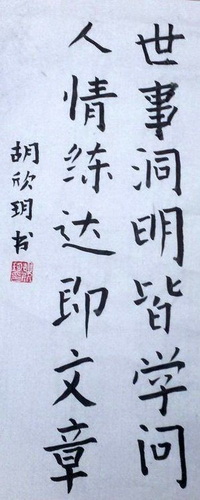 世事洞明皆学问
人情练达即文章
胡欣玥书